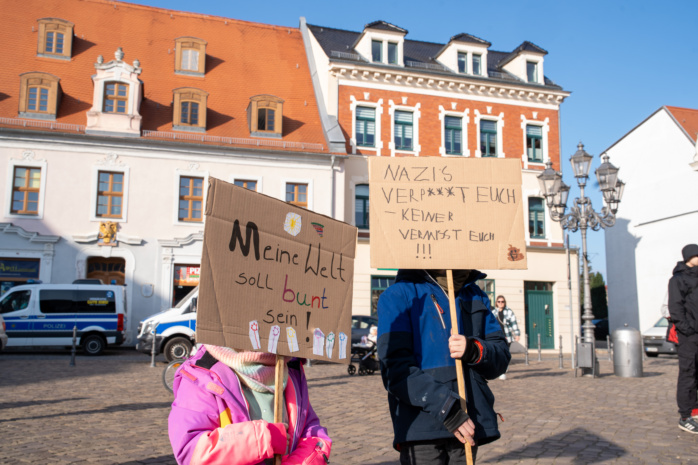 Meine Welt
soll bunt
sein!
NAZI'S
VERP***T EUCH
- KEINER
VERMISST EUCH
!!!